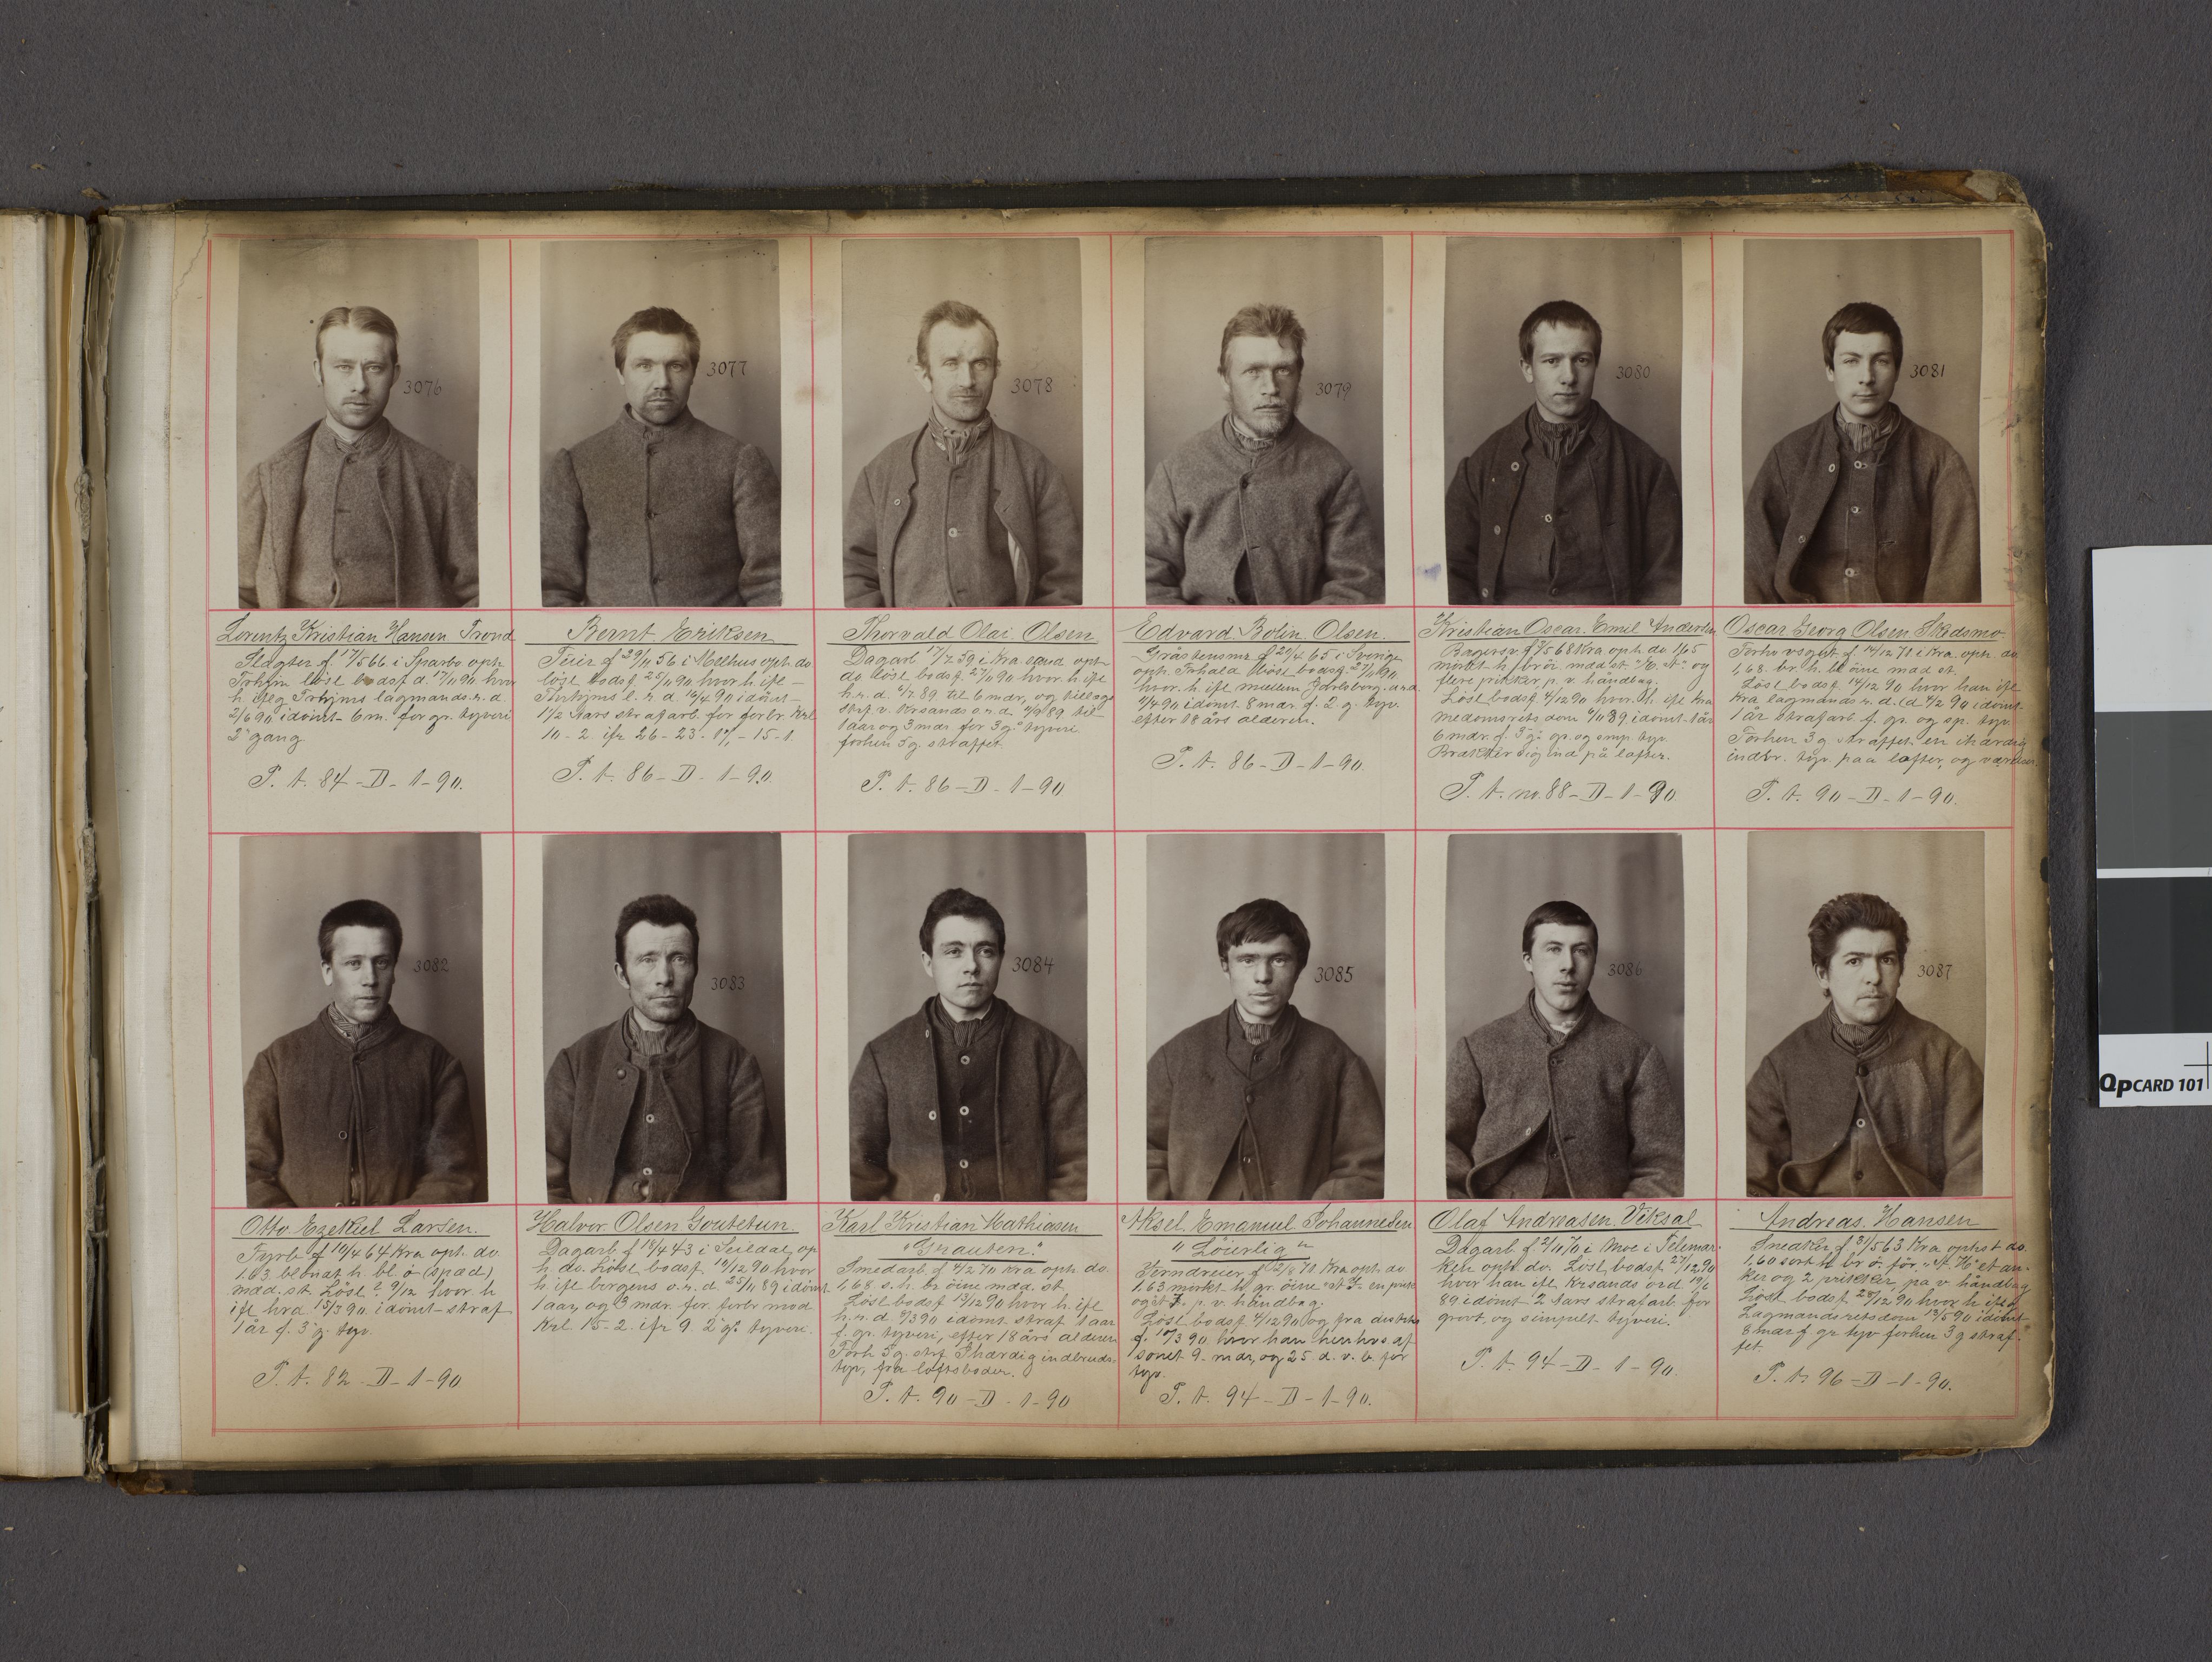 3076
3077
3078
3079
3080
3081
Lorentz Kristian Hansen Trond
Slagter f. 17/5 66 i Sparbo oph
Trhjm löst bodsf d. 17/11 90 hvor
h iflg Trhjms lagmands.r.d.
2/6 90 idömt 6 m. for gr. tyveri
2den gang
P. A. 84 - D - 1 - 90.
Bernt Eriksen
f 29/11 56 i Melhus oph do.
löst bodsf. 25/11 90 hvor h. ifl
Trhjms l. r. d 16/4 90 idömt
1 1/2 Aars strafarb. for forbr. Krl
10 - 2. ifr 26 - 23 - 17, - 15 - 1.
P. A. 86 - D - 1 - 90.
Thorvald Olai Olsen
Dagarb 17/7 59 i Kra sand oph
do löst bodsf. 27/11 90 hvor h. ifl
h. r. d. 6/7 89 til 6 mdr, og tillægs
strf. v. Krsands o. r. d. 89 til
1 aar og 3 mdr for 3 g. tyveri
forhen 5 g. straffet.
P. A. 86 - D - 1 - 90
Edvard Bolin Olsen.
f 20/4 65 i Sverige
oph. Frhald löst bodsf. 27/11 90
hvor. h. ifl mellem Jarlsberg
9/4 90 idömt 8 mdr. f. 2 g. tyv.
efter 18 års alderen.
P. A. 86 - D - 1 - 90.
Kristian Oscar Emil Andersen
Bagersv. f 7/5 68 Kra oph do 1,65
mörkt h. br ö. mid st. og
flere prikker p. v. håndbag.
Löst bodsf 4/12 90 hvor. h. ifl Kra
medomsrets dom 6/11 89 idömt 1 år
6 mdr. f. 3 g. gr. og simp. tyv.
Brækker sig ind på lofter.
P. A. no. 88 - D - 1 - 90
Oscar Georg Olsen Skedsmo
f 14/12 71 i Kra. oph. do
1,68. br. h. bl öine mid st.
Löst bodsf 14/12 90 hvor han ifl
Kra lagmands r. d. 4/2 90 idömt
1 år strafarb f. gr. og sp. tyv.
Forhen 3 g straffet. en ihærdig
indbr. tyv. paa lofter, og værelser
P. A. 90 - D - 1 - 90.
3082
3083
3084
3085
3086
3087
Otto Ezekiel Larsen.
Fyrb f 10/4 64 Kra oph. do.
1.63 h. bl ö (spæd)
mid. st. Löst 9/12 hvor h
ifl hrd 15/3 90. idömt straf
1 år f. 3 g. tyv.
P. A. 82 - D - 1 - 90
Halvor Olsen Goutetun.
Dagarb. f 18/4 43 i Seildal, op
h. do. Löst bodsf. 10/12 90 hvor
h. ifl bergens o. r. d. 25/11 89 idömt
1 aar, og 3 mdr. for. forbr mod
Krl. 15 - 2. ifr 9. 2 g. tyveri.
Karl Kristian Mathiasen
"Grauten."
Smedarb f 4/2 70 Kra oph do.
1,68 s. h. br öine mid. st.
Löst bodsf 13/12 90 hvor h. ifl
h. r. d. 6/3 90 idömt straf 1 aar
f. gr. tyveri, efter 18 års alderen
Forh 5 g. strf. Ihærdig indbruds-
tyv, fra loftsboder.
P. A. 90 - D. 1 - 90
Aksel Emanuel Johannesen
" Löierlig "
Jerndreier, f 70 Kra oph. do
1,63 mörkt h. gr. öine
p. v. håndbag.
Löst bodsf 90 og fra distrikts
f. 10/3 90 hvor han henhvs af
sonet 9. mdr, og 25. d. v. b. for
tyv.
P. A. 94 - D - 1 - 90.
Olaf Andreasen Viksal
Dagarb f 2/11 70 i Moe i Telemar-
ken oph do. Löst bodsf 27/12 90
hvor han ifl. Krsands ord 19/6
89 idömt 2 Aars strafarb. for
grovt, og simpelt tyveri.
P. A. 94 - D - 1 - 90.
Andreas Hansen
Snedker f 31/5 63 Kra ophst do.
1,60 sort h br ö. för. "A H" et an-
ker og 2 prikker, pa v. håndbag
Löst. bodsf 28/12 90 hvor h. ifl
Lagmandsretsdom 13/5 90 idömt
8 mdr f gr tyv forhen 3 g straf-
fet.
P. A. 96 - D - 1 - 90.
QpCARD 101